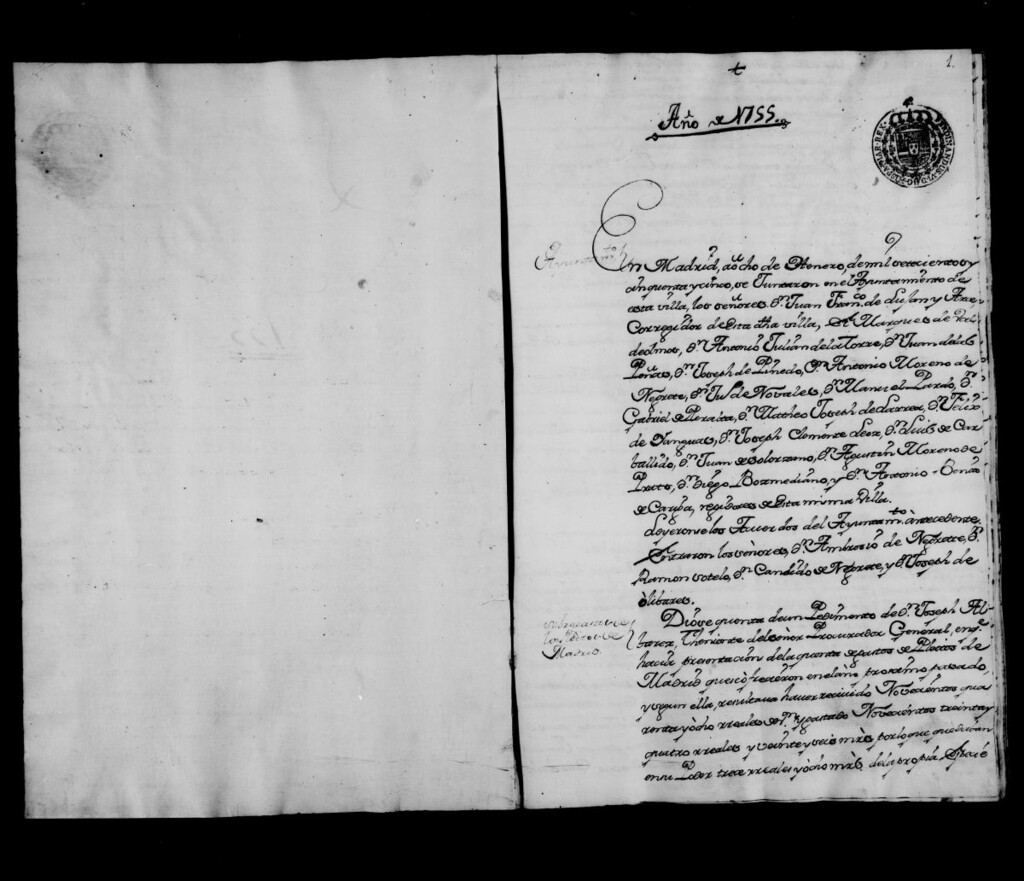 1.
Año de 1755.
Ayuntamto
En Madrid, aocho de Henero, demil setecientos y
cinquenta y cinco, se Juntaron en el Ayuntamiento de
esta villa, los señores Dn. Juan Franco. de Lujan y Arze
Corregidor de esta dha villa, el Marques de Val-
deolmos, Dn. Antonio Julian dela Torre, Dn. Juan delas
Peñas, Dn. Joseph de Pinedo, Dn. Antonio Moreno de
Negrete, Dn. Jul. de Novales, Dn. Manuel Pardo, Dn.
Gabriel de Peralta, Dn. Matheo Joseph de Larrea, Dn. Felix
de Yanguas, Dn. Joseph Clemente, Dn. Luis de Car-
ballido, Dn. Juan de Solorzano, Dn. Agustin Moreno de
Prado, Dn. Diego Bozmediano, y Dn. Antonio Benito
de Cariga, regidores de esta misma Villa.
Leyeronse los Acuerdos del Ayuntamto. antecedente.
Entraron los señores, Dn. Ambrosio de Negrete, Dn.
Ramon sotelo, Dn. Candido de Negrete, y Dn. Joseph de
olibares.
Madrid.
Diose quenta de un Pedimento de Dn. Joseph Al-
barez, Theniente del señor Procurador General, en qe.
hacia presentacion dela quenta de gastos de Pleitos de
Madrid que se ofrecieron en el año proximo pasado,
y segun ella, resultava haver reciuido Novecientos qua
renta y ocho rreales de vn. y gastado Novecientos treinta y
quatro rreales y veinte y seis mrs. por lo que quedavan
en su Poder trece rreales y ocho mrs. dela propia Especie